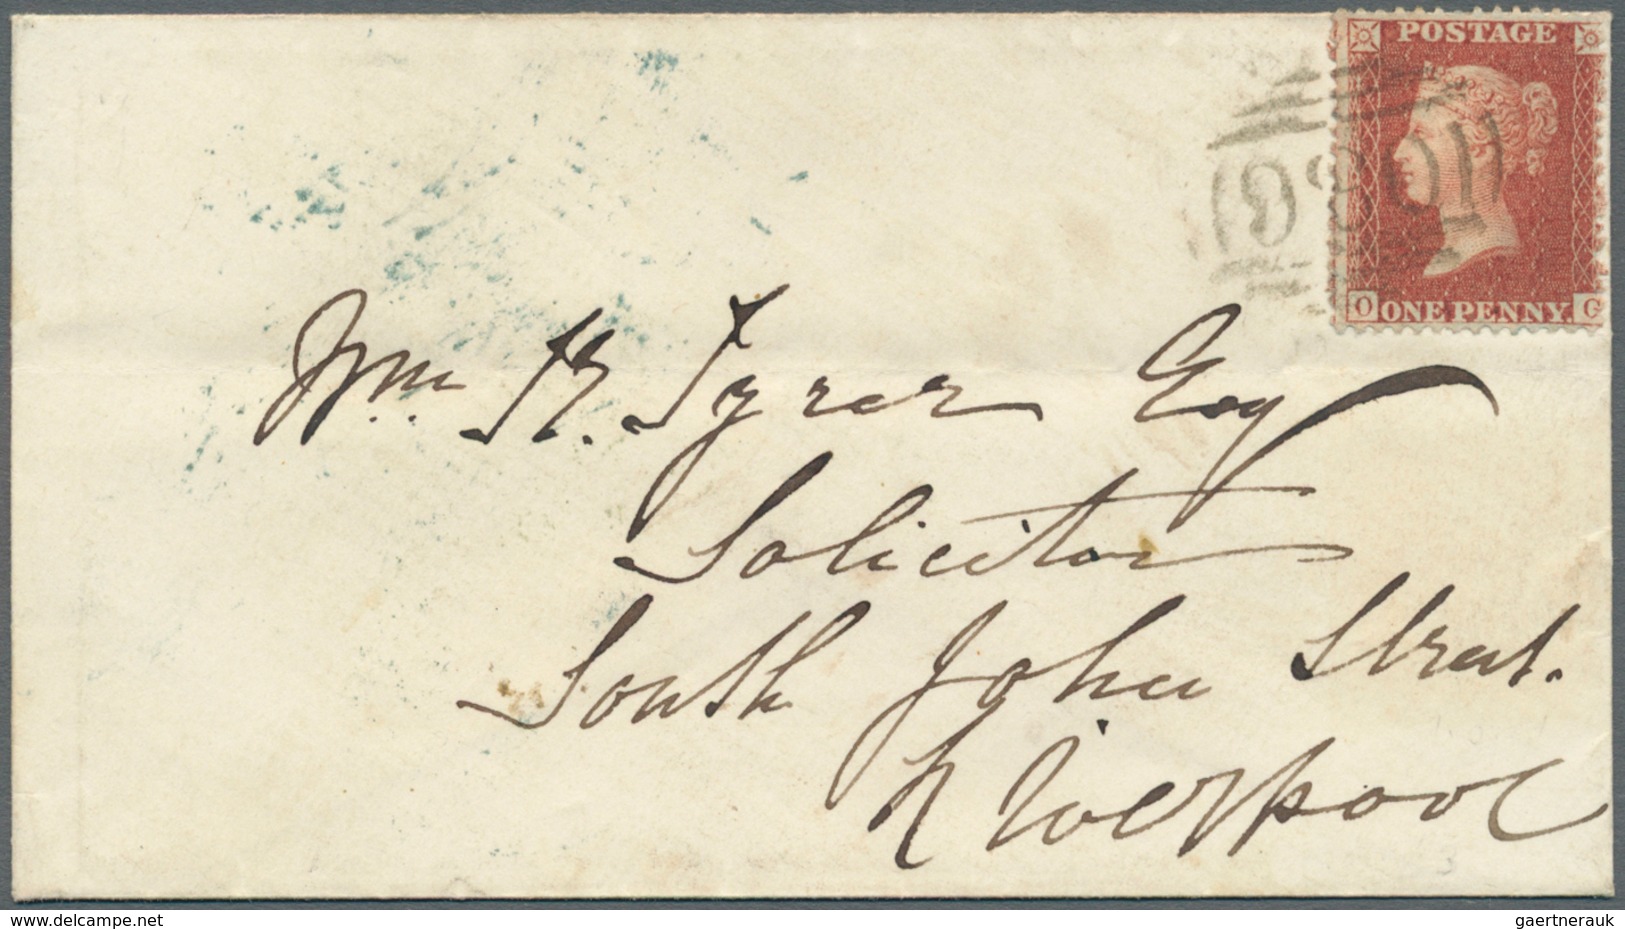 POSTAGE
O ONE PENNY. G
Wm H. Tyrer Esq
Solicitor
South John Street.
Liverpool
© www.delcampe.net
gaertnerauk